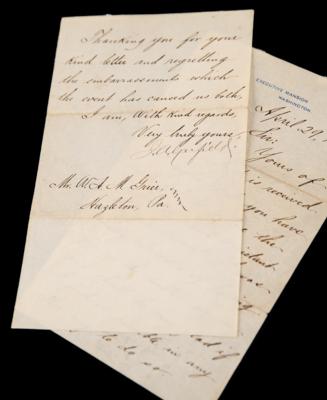 Thanking you for your
kind letter and regretting
the embarrassments which
the event has caused us both,
I am, With kind regards,
Very truly yours,
J A Garfield
Mr. W. A. M. Grier,
Hazleton, Pa.
EXECUTIVE MANSION
WASHINGTON
April 29,
Sir:
Yours of
is received
you have
the
in any
to do so